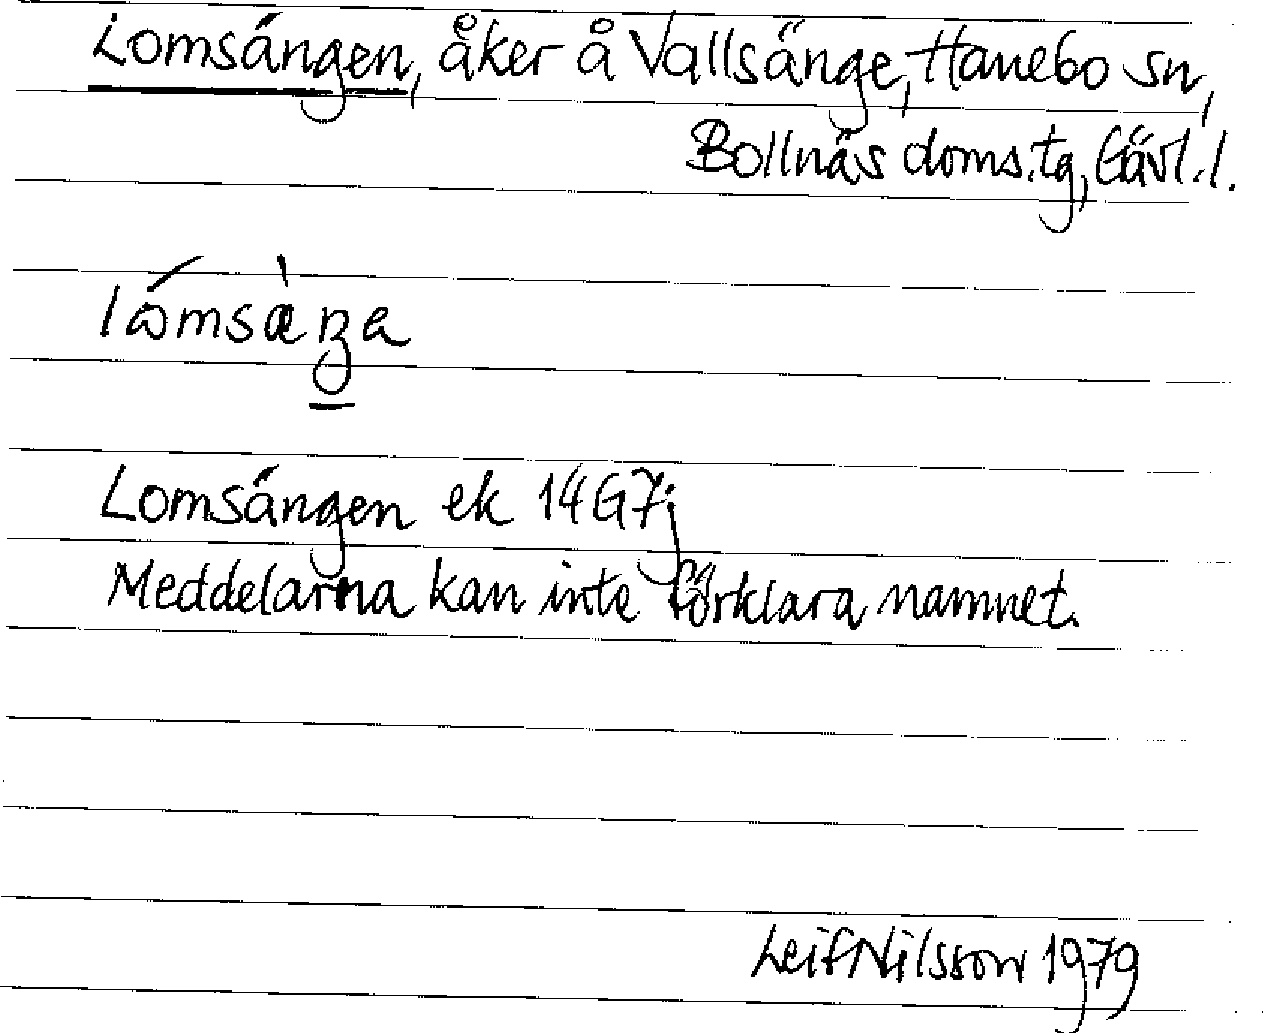 Lomsängen, åker å Vallsänge, Hanebo sn,
Bollnäs doms.tg, Gävl.l.
Lomsängen ek 14G7j
Meddelarna kan inte förklara namnet.
Leif Nilsson 1979